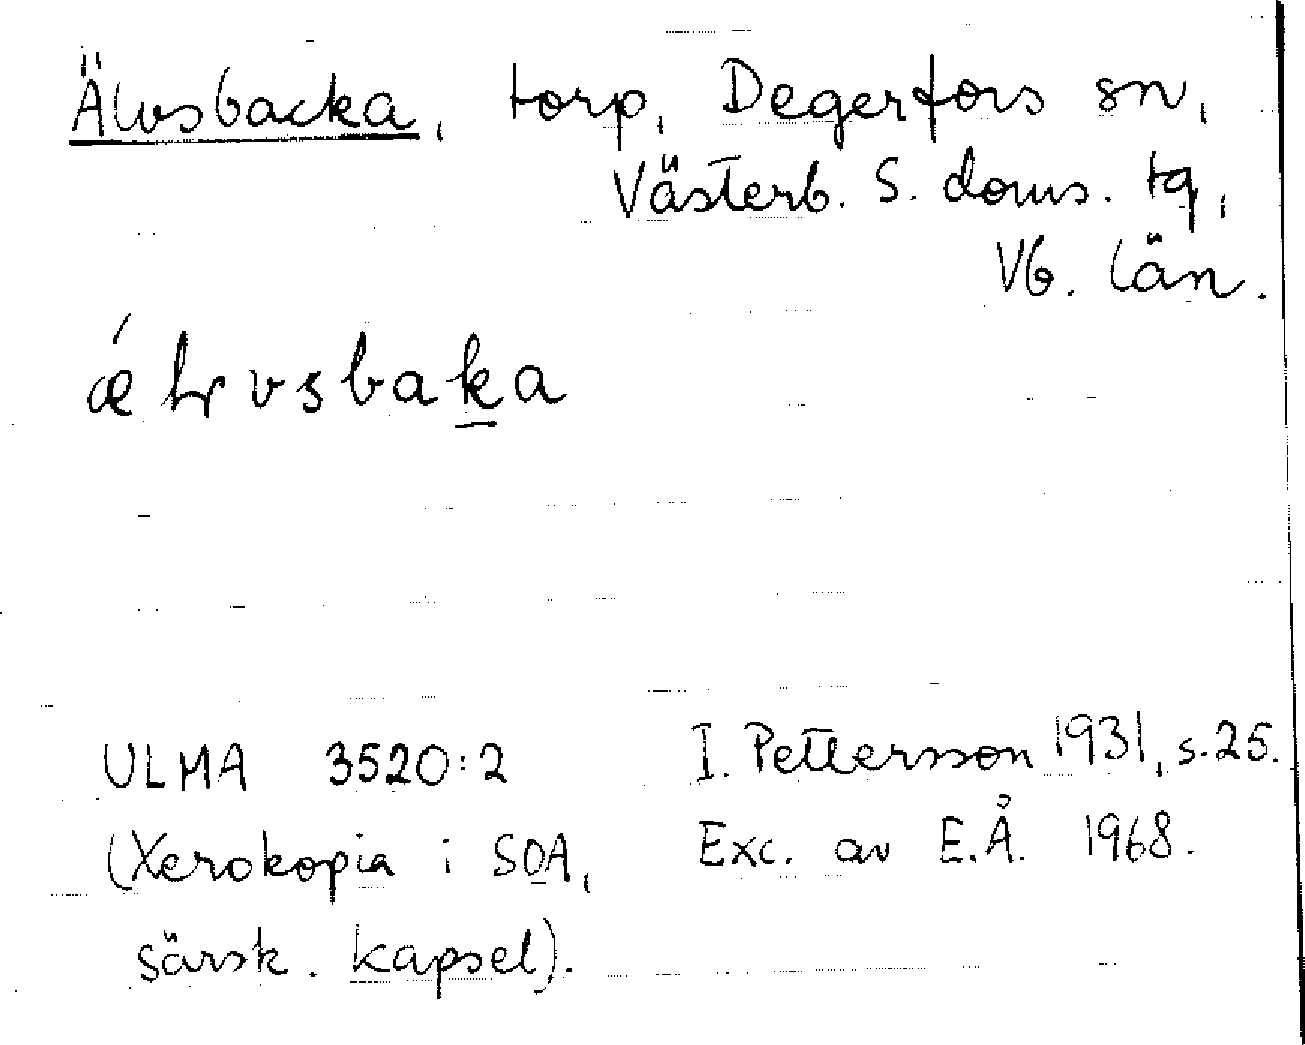 Älvsbacka, torp, Degerfors sn,
Västerb. S. doms. tg,
Vb. län.
ǽƚvsbaka
ULMA 3520:2 I. Pettersson 1931, s. 25.
(Xerokopia i SOA, Exc. av E.Å. 1968.
särsk. kapsel).